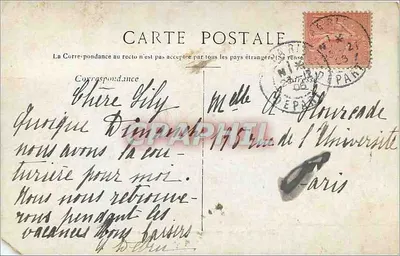 CARTE POSTALE
La Correspondance au recto n'est pas acceptée par tous les pays étrangers
Correspondance
Chère Lily
Quoique Dimanche
nous avons la cou-
turière pour moi.
Nous nous retrouve-
rons pendant les
vacances. Bons baisers
Melle
178 rue de l'Université
Paris
PARIS
DEPART
DEPART
SPHAPHIL